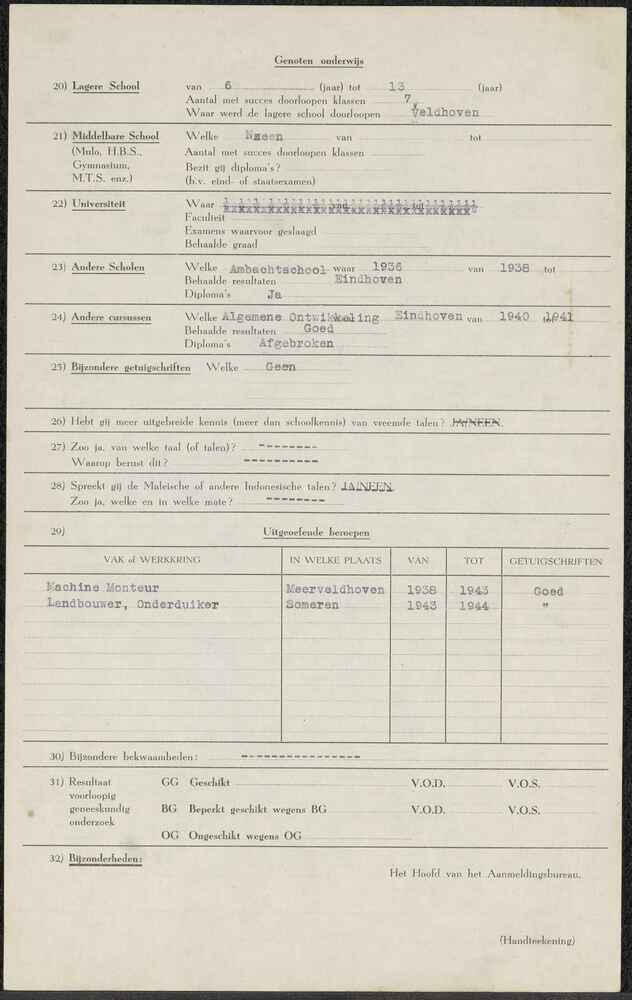 Genoten onderwijs
20) Lagere School van 6 (jaar) tot 13 (jaar)
Aantal met succes doorloopen klassen 7
Waar werd de lagere school doorloopen Veldhoven
21) Middelbare School Welke Neeen van tot
(Mulo, H.B.S., Aantal met succes doorloopen klassen
Gymnasium, Bezit gij diploma's?
M.T.S. enz.) (b.v. eind- of staatsexamen)
22) Universiteit Waar van tot
Faculteit
Examens waarvoor geslaagd
Behaalde graad
23) Andere Scholen Welke Ambachtschool waar 1936 van 1938 tot
Behaalde resultaten Eindhoven
Diploma's Ja
24) Andere cursussen Welke Algemene Ontwikkeling Eindhoven van 1940 tot 1941
Behaalde resultaten Goed
Diploma's Afgebroken
25) Bijzondere getuigschriften Welke Geen
26) Hebt gij meer uitgebreide kennis (meer dan schoolkennis) van vreemde talen? JA/NEEN.
27) Zoo ja, van welke taal (of talen)? --------
Waarop berust dit? ----------
28) Spreekt gij de Maleische of andere Indonesische talen? JA/NEEN
Zoo ja, welke en in welke mate? --------
29) Uitgeoefende beroepen
VAK of WERKKRING IN WELKE PLAATS VAN TOT GETUIGSCHRIFTEN
Machine Monteur Meerveldhoven 1938 1943 Goed
Landbouwer, Onderduiker Someren 1943 1944 "
30) Bijzondere bekwaamheden: ----------------
31) Resultaat GG Geschikt V.O.D. V.O.S.
voorloopig
geneeskundig BG Beperkt geschikt wegens BG V.O.D. V.O.S.
onderzoek
OG Ongeschikt wegens OG
32) Bijzonderheden:
Het Hoofd van het Aanmeldingsbureau.
(Handteekening)